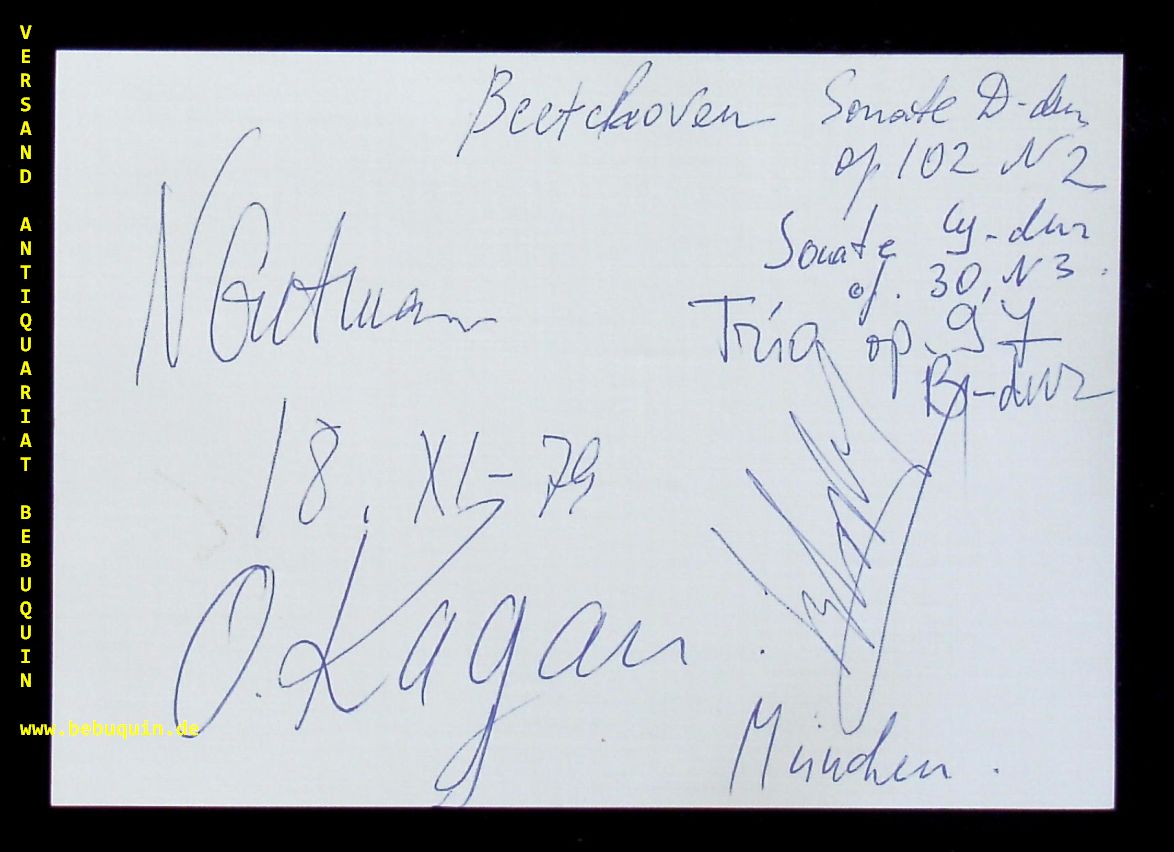 VERSAND ANTIQUARIAT BEBUQUIN
www.bebuquin.de
Beethoven Sonate D-dur
op 102 N2
Sonate G-dur
op. 30, N3.
Trio op. 97
B-dur
N Gutman
18. XI-79
O. Kagan.
München.